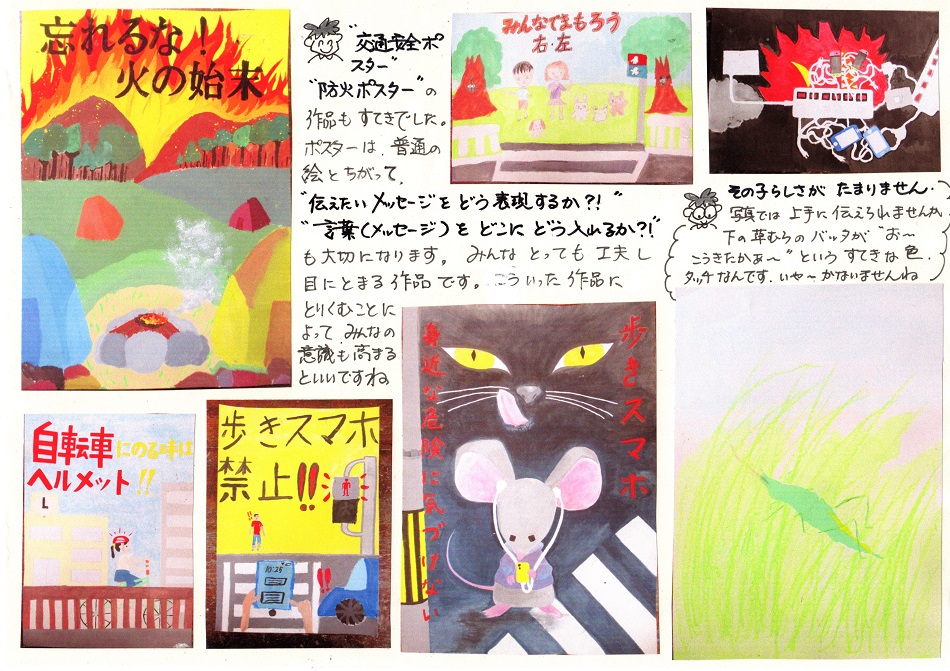 忘れるな！
火の始末
"交通安全ポ
スター"
"防火ポスター"の
作品も すてきでした。
ポスターは、普通の
絵とちがって、
"伝えたいメッセージをどう表現するか？！"
"言葉（メッセージ）をどこにどう入れるか？！"
も大切になります。みんなとっても工夫し
目にとまる作品です。こういった作品に
とりくむことに
よって みんなの
意識も高まる
といいですね
みんなでまもろう
右・左
その子らしさが たまりません。
写真では上手に伝えられませんが、
下の草むらのバッタが"お〜
こうきたかぁ〜"というすてきな色、
タッチなんです。いや〜かないませんね
自転車にのる時は
ヘルメット!!
L
歩きスマホ
禁止!!
10:25
歩きスマホ
身近な危険に気づけない